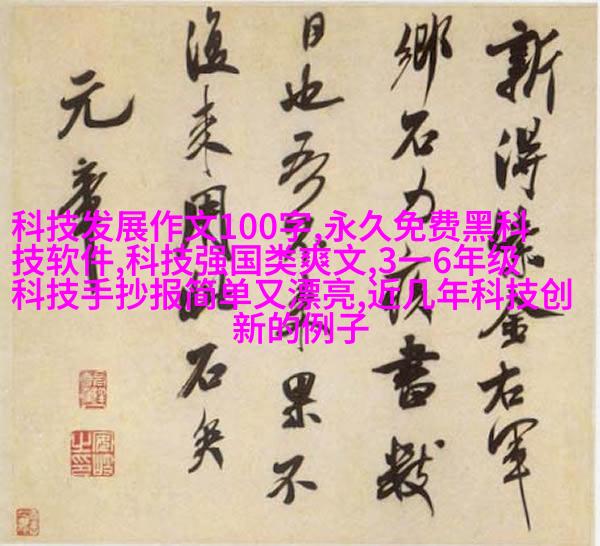 新得紫金右軍
鄉石力疾書數
日也吾果不
復來用此石矣
元章
科技发展作文100字,永久免费黑科
技软件,科技强国类爽文,3一6年级
科技手抄报简单又漂亮,近几年科技创
新的例子